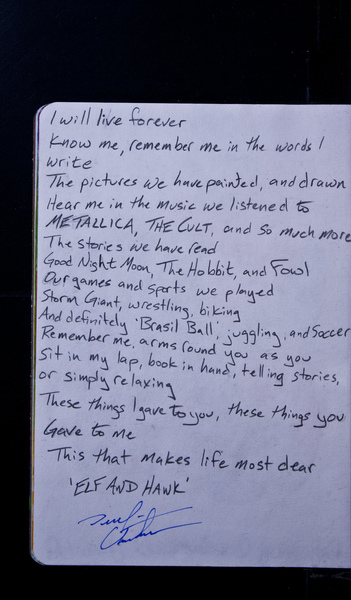 I will live forever
Know me, remember me in the words I
write
The pictures we have painted, and drawn
Hear me in the music we listened to
METALLICA, THE CULT, and so much more
The stories we have read
Good Night Moon, The Hobbit, and Fowl
Our games and sports we played
Storm Giant, wrestling, biking
And definitely 'Brasil Ball', juggling, and Soccer
Remember me, arms round you as you
Sit in my lap, book in hand, telling stories,
or simply relaxing
These things I gave to you, these things you
Gave to me
This that makes life most dear
'ELF AND HAWK'